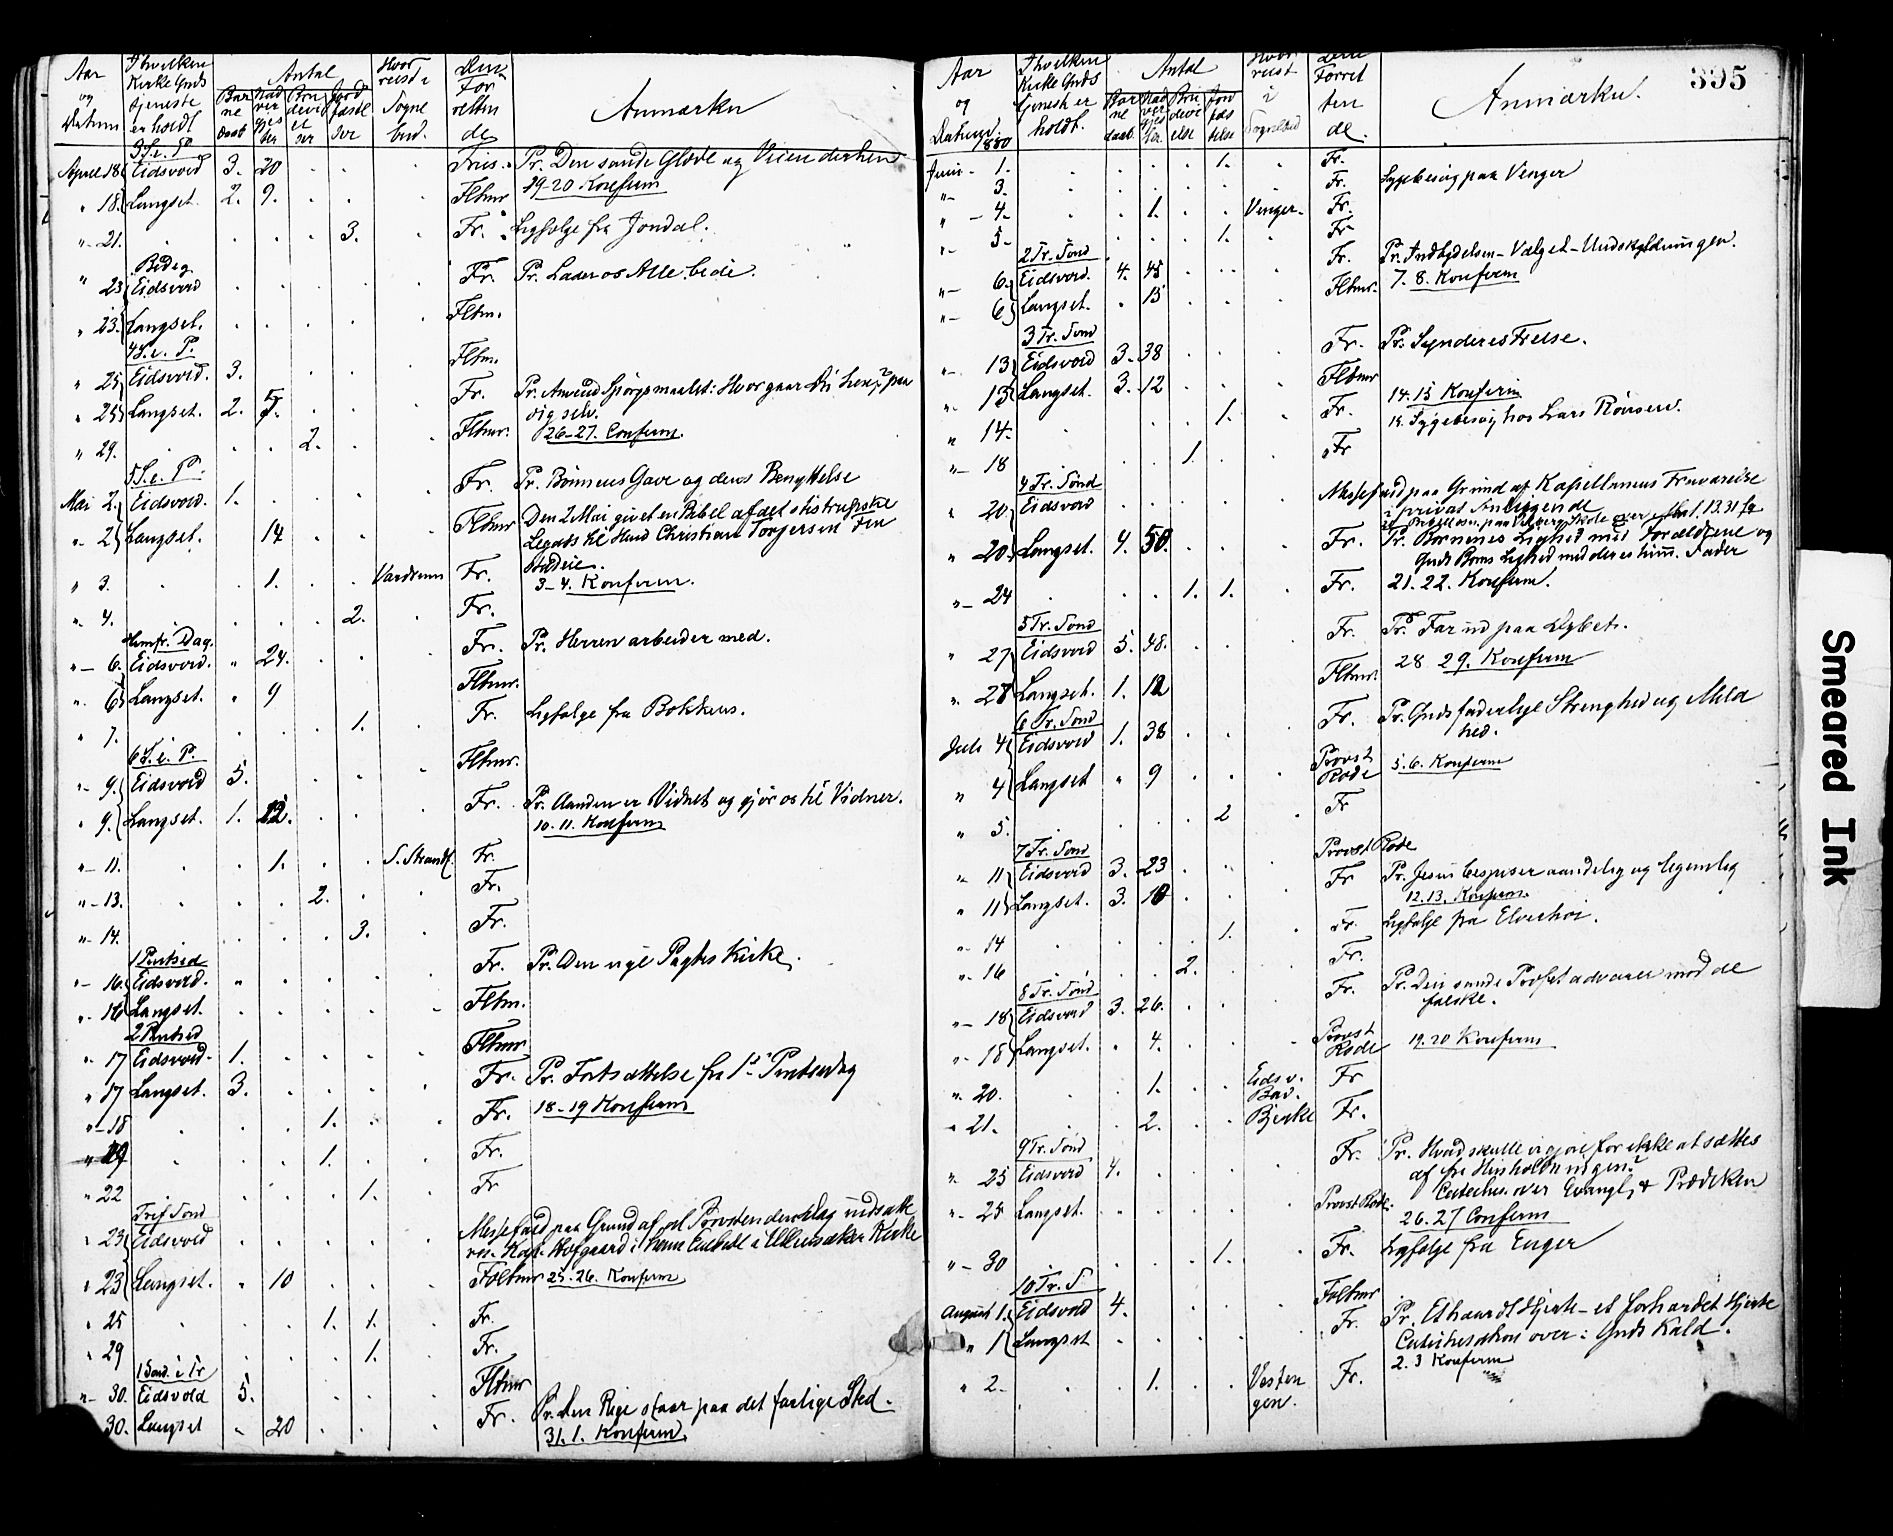 Aar og Datum | I hvilken Kirke Guds tjeneste er holdt | Antal | Hvor reist i Sogne bud. | Den For rettende | Anmærkn
April 18 3 S. e. P. Eidsvold 3. 20 . . . Pr. Den sande Glæde og Veien
19-20 Konfirm
" 18. Langset. 2. 9. . . . Flbmr
" 21. . . . . 3. . Fr. Ligfølge fra Jondal.
Bededg
" 23 Eidsvold . . . . . Fr. Pr. Lader os Alle bede.
" 23. Langset. . . . . . Flbm.
4 S. e. P.
" 25 Eidsvold. 3. . . . Flbm.
" 25 Langset. 2. 5. . . . Fr. Pr. Anvend Spörgsmaalet: Hvor gaar Du hen? paa
dig selv.
26-27. Confirm.
" 29. . . . 2. . Flbmr.
5 S. e. P.
Mai 2. Eidsvold. 1. . . . . Fr. Pr. Bönnens Gave og dens Benyttelse
" 2 Langset. . 14 . . . Flbmr Den 2 Mai givet en Bibel af det
Legats til Hend Christian Torjersen
" 3. . . 1. . . Fr.
3-4. Konfirm.
" 4. . . . . 2. . Fr.
Himfr. Dag.
" 6. Eidsvold. " 24. . . . Fr. Pr. Herren arbeider med.
" 6 Langset. " 9 Flbmr.
" 7. . . . . 1. . Fr. Ligfølge fra Bokkens.
6 S. e. P.
" 9. Eidsvold 5. . . . Flbmr.
" 9. Langset. 1. 12. . . . Fr. Pr. Aanden er Vidnet og gjör os til Vidner.
10. 11. Konfirm
" 11. . . 1. . . S. Strand Fr.
" 13. . . . 2. . Fr.
" 14. . . . . 3. . Fr.
1 Pintsed
" 16. Eidsvold. " . . . . Fr. Pr. Den nye Pagtes Kirke.
" 16 Langset. . . . . . Flbm.
2 Pintsed
" 17 Eidsvold. 1. . . . . Flbmr
" 17 Langset. 3. . . . . Fr. Pr. Fortsættelse fra 1st Pintsedag
18-19 Konfirm
" 18 . . . 1. . . Fr.
" 19 . . . 1. . . Fr.
" 22 . . . . 1. . Fr
Tref Sond
" 23 Eidsvold . . . . . Messefald paa Grund af at Provsten den Dag indsatte
Kap. Hofgaard i hans Embede i Ullensaker Kirke
" 23 Langset. " 10 . . . Folbmr 25-26. Konfirm
" 25 . . . 1. 1. . Fr.
" 29 . . . . 1. . Fr.
1 Sond. e Tr
" 30. Eidsvold 5. . . . . Flbmr
30. Langset " 20 . . . Fr. Pr. Den Rige staar paa det farlige Sted.
31. 1. Konfirm.
395
Aar og Datum. 1880 | I hvilken Kirke Guds tjenest er holdt. | Antal | Hvor reist i Sognebud | Dene Forret tende. | Anmærkn.
Juni - 1. . . . . 1. . Fr.
" 3. . . . . . . Fr. Sygebesøg paa Venger
" 4. . . 1. . . Venger. Fr.
" 5 . . . . 1. . Fr
2 Tr. Sond
" 6. Eidsvold. 4. 45 . . . Fr. Pr. Indbydelsen - Valget - Undskyldningen.
" 6 Langset. . 15 . . . Flbmr. 7. 8. Konfirm
3 Tr. Sond
" 13 Eidsvold 3. 38 . . . Fr. Pr. Synderes Frelse.
" 13 Langset. 3. 12 . . . Flbmr
14. 15 Konfirm
" 14. . . . . 1. . Fr. Sygebesøg hos Lars
" 18 . . . 1. . . Fr
4 Tr. Sönd
" 20. Eidsvold . . . . . Messefald paa Grund af Kapellanens Fraværelse
i privat Anliggende
" 20. Langset. 4. 50. . . . Fr. Pr. Börnenes Lighed med Forældrene og
Guds Börns Lighed med deres him. Fader
" 24 . . . 1. 1. . Fr. 21. 22. Konfirm.
5 Tr. Sönd
" 27 Eidsvold 5. 48. . . . Fr. Pr. Far ud paa Dybet.
" 27 Langset. 1. 12 . . . Flbmr. 28 29. Konfirm
6 Tr. Sond
Juli 4 Eidsvold 1. 38 . . . Fr. Pr. Guds faderlige Strenghed og Mild
hed.
" 4 Langset " 9 . . . Provst Rode 5. 6. Konfirm
" 5. . . . . 2 . Fr
7 Tr. Sond
" 11 Eidsvold 3. 23 . . . Provst Rode
" 11 Langset. 3. 10 . . . Fr Pr. Jesus bespiser aandelig og legemlig
12. 13. Konfirm.
" 14 . . . . 1. . Fr. Ligfølge fra Elveshöi.
" 16 . . . 2. . . Fr.
8 Tr. Sönd
" 18 Eidsvold 3. 26. . . . Fr. Pr. Den sande Profet advarer mod de
falske.
" 18 Langset. " 4. . . . Provst Rode 19. 20 Konfirm
" 20. . . 1. . . Eidsv. Bad. Fr
" 21. . . 2. . . Bjerke Fr.
9 Tr. Sönd
" 25 Eidsvold 4. . . . . Fr. Pr. Hvad skulle vi gjöre for ikke at sættes
af fra Husholdningen?
Catechis. over Evangl. & Prædiken
" 25 Langset. . . . . . Provst Rode.
26. 27 Confirm
" 30 . . . . 1. . Fr. Ligfølge fra Enger
10 Tr. S
August 1. Eidsvold 4. . . . Folbmr
" 1 Langset . . . . . Fr. Pr. Et haardt Hjerte - et forhærdet Hjerte
Catechisation over: Guds Kald.
2. 3 Konfirm
" 2. . . 1. . . Vesten gen. Fr.
Smeared Ink